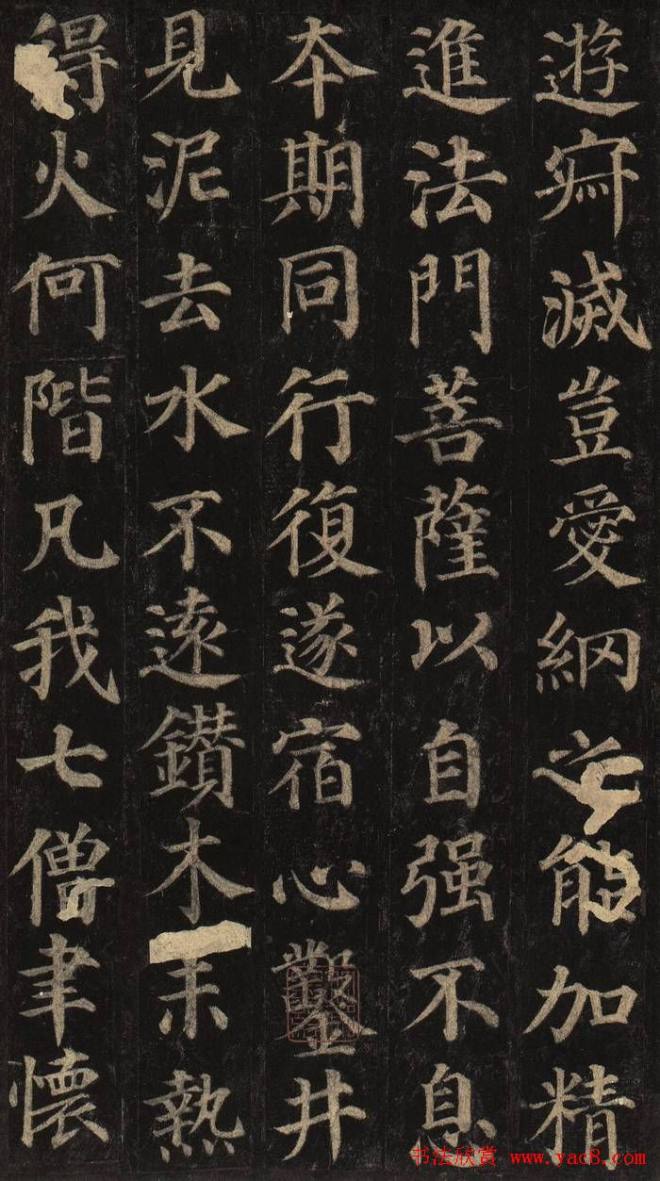 遊寂滅豈愛網之能加精
進法門菩薩以自强不息
夲期同行復遂宿心鑿井
見泥去水不遠鑽木未熱
得火何階凡我七僧聿懷
书法欣赏 www.yac8.com